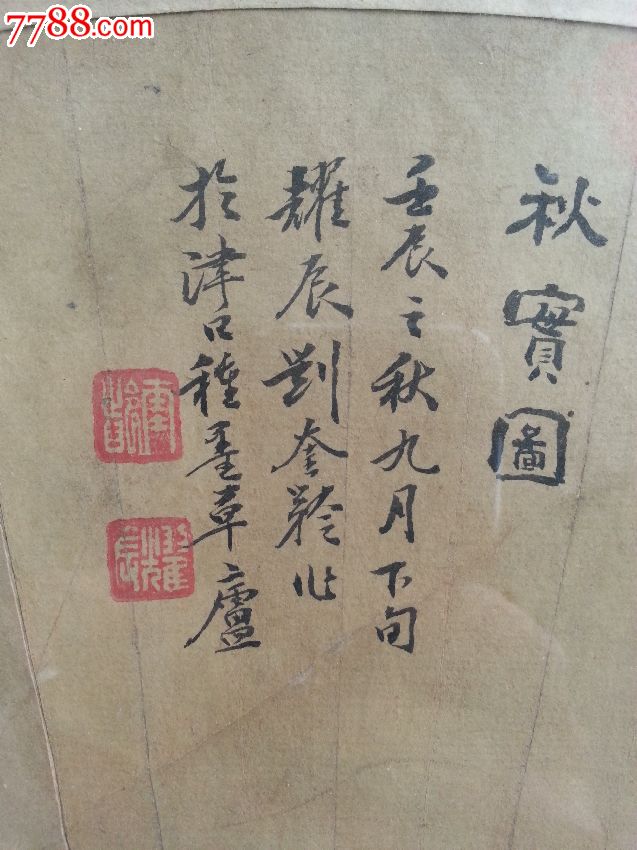 7788.com
秋實圖
壬辰之秋九月下旬
耀辰劉奎齡作
於津口種墨草廬
耀辰